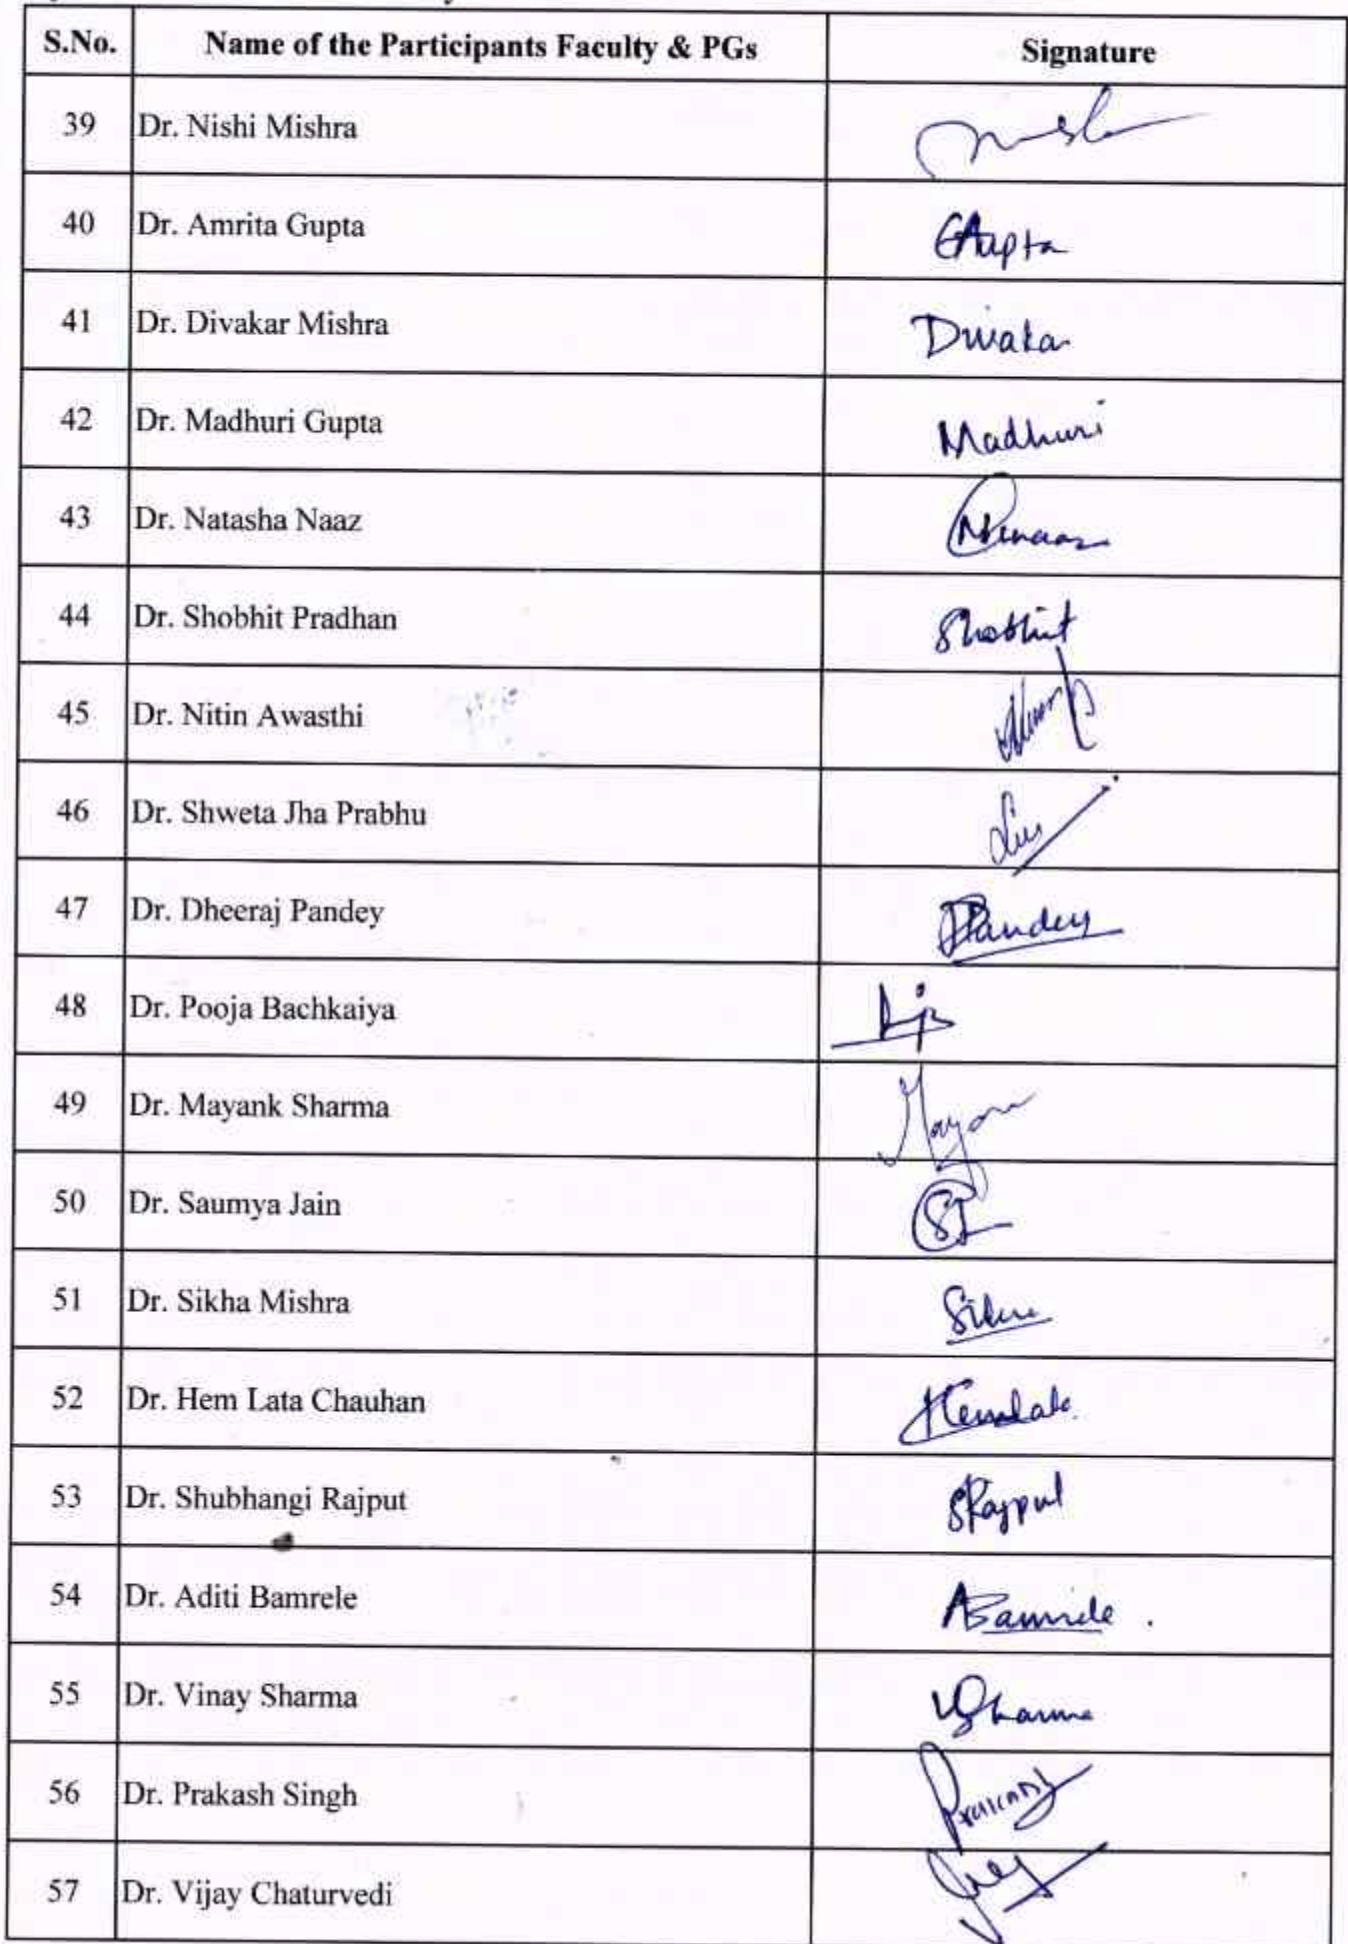 S.No. Name of the Participants Faculty & PGs Signature
39 Dr. Nishi Mishra
40 Dr. Amrita Gupta GAupta
41 Dr. Divakar Mishra Divaka
42 Dr. Madhuri Gupta Madhuri
43 Dr. Natasha Naaz
44 Dr. Shobhit Pradhan Shobhit
45 Dr. Nitin Awasthi
46 Dr. Shweta Jha Prabhu
47 Dr. Dheeraj Pandey DPandey
48 Dr. Pooja Bachkaiya
49 Dr. Mayank Sharma Mayan
50 Dr. Saumya Jain SJ
51 Dr. Sikha Mishra
52 Dr. Hem Lata Chauhan Hemlata
53 Dr. Shubhangi Rajput SRajput
54 Dr. Aditi Bamrele ABamrele .
55 Dr. Vinay Sharma VSharma
56 Dr. Prakash Singh
57 Dr. Vijay Chaturvedi